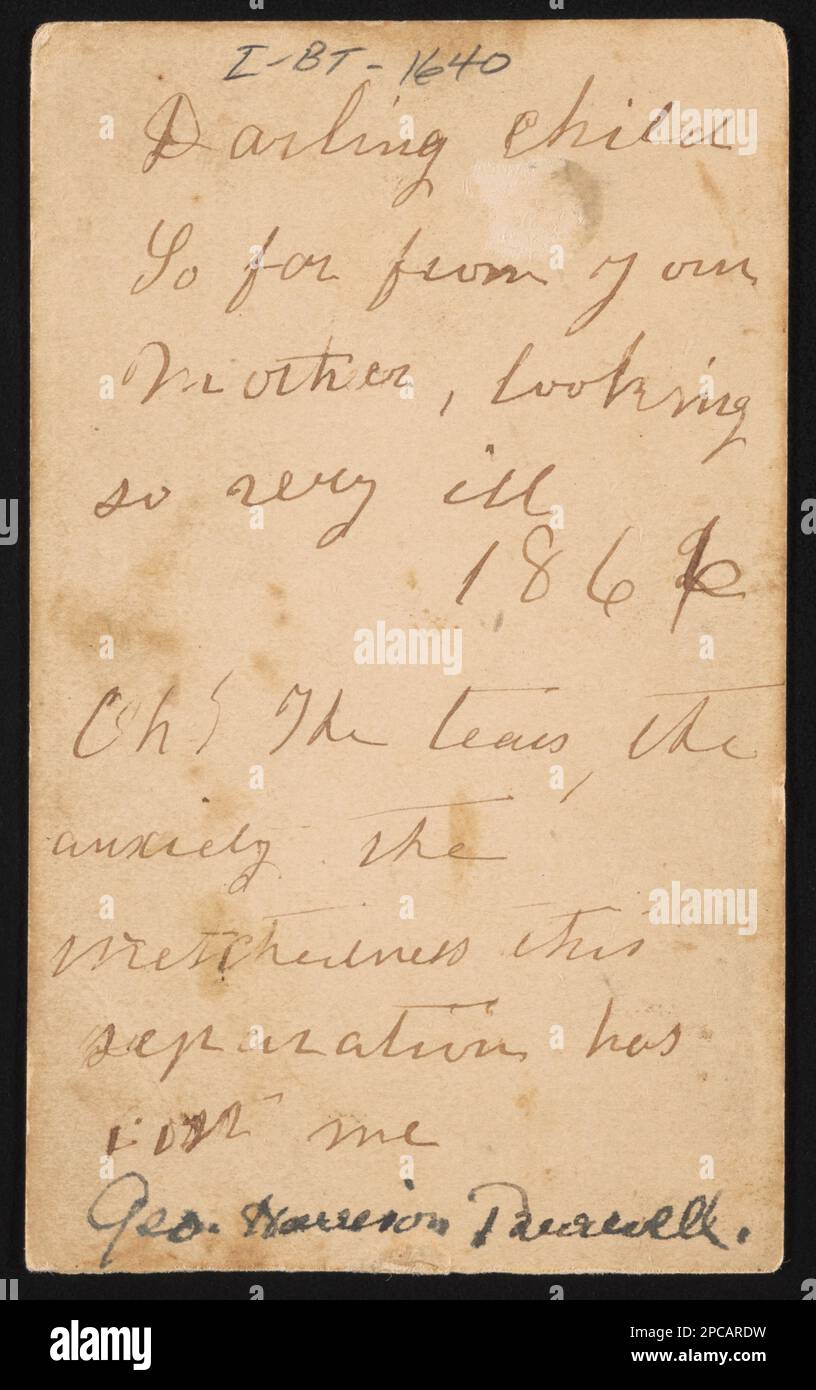 I-BT-1640
Darling child
So far from your
Mother, looking
so very ill
186
Oh! The tears, the
anxiety the
wretchedness this
separation has
cost me
Geo. Harrison
alamy
Image ID: 2PCARDW
www.alamy.com